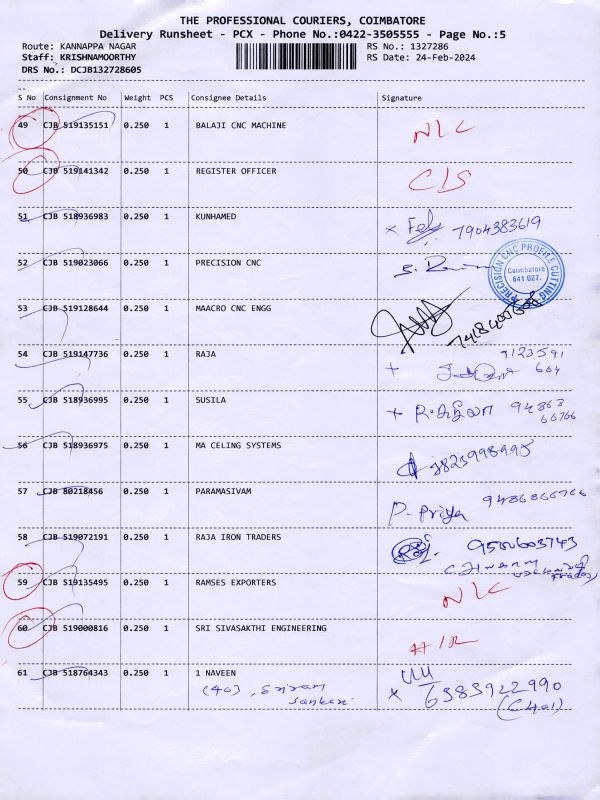 THE PROFESSIONAL COURIERS, COIMBATORE
Delivery Runsheet - PCX - Phone No.:0422-3505555 - Page No.:5
Route: KANNAPPA NAGAR RS No.: 1327286
Staff: KRISHNAMOORTHY RS Date: 24-Feb-2024
DRS No.: DCJB132728605
S No Consignment No Weight PCS Consignee Details Signature
49 CJB 519135151 0.250 1 BALAJI CNC MACHINE N/C
50 CJB 519141342 0.250 1 REGISTER OFFICER C/S
51 CJB 518936983 0.250 1 KUNHAMED x 7904383619
52 CJB 519023066 0.250 1 PRECISION CNC
PRECISION CNC PROFILE CUTTING
Coimbatore
641 027.
53 CJB 519128644 0.250 1 MAACRO CNC ENGG
54 CJB 519147736 0.250 1 RAJA + 7123591
664
55 CJB 518936995 0.250 1 SUSILA + R. சுசீலா 94863
66766
56 CJB 518936975 0.250 1 MA CELING SYSTEMS
57 CJB 80218456 0.250 1 PARAMASIVAM P. Priya 9486866766
58 CJB 519072191 0.250 1 RAJA IRON TRADERS
59 CJB 519135495 0.250 1 RAMSES EXPORTERS N/C
60 CJB 519000816 0.250 1 SRI SIVASAKTHI ENGINEERING
61 CJB 518764343 0.250 1 1 NAVEEN x 6383922990
(40), Sriram (C401)